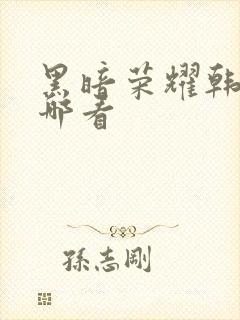 黑暗荣耀韩
哪看
孫志剛